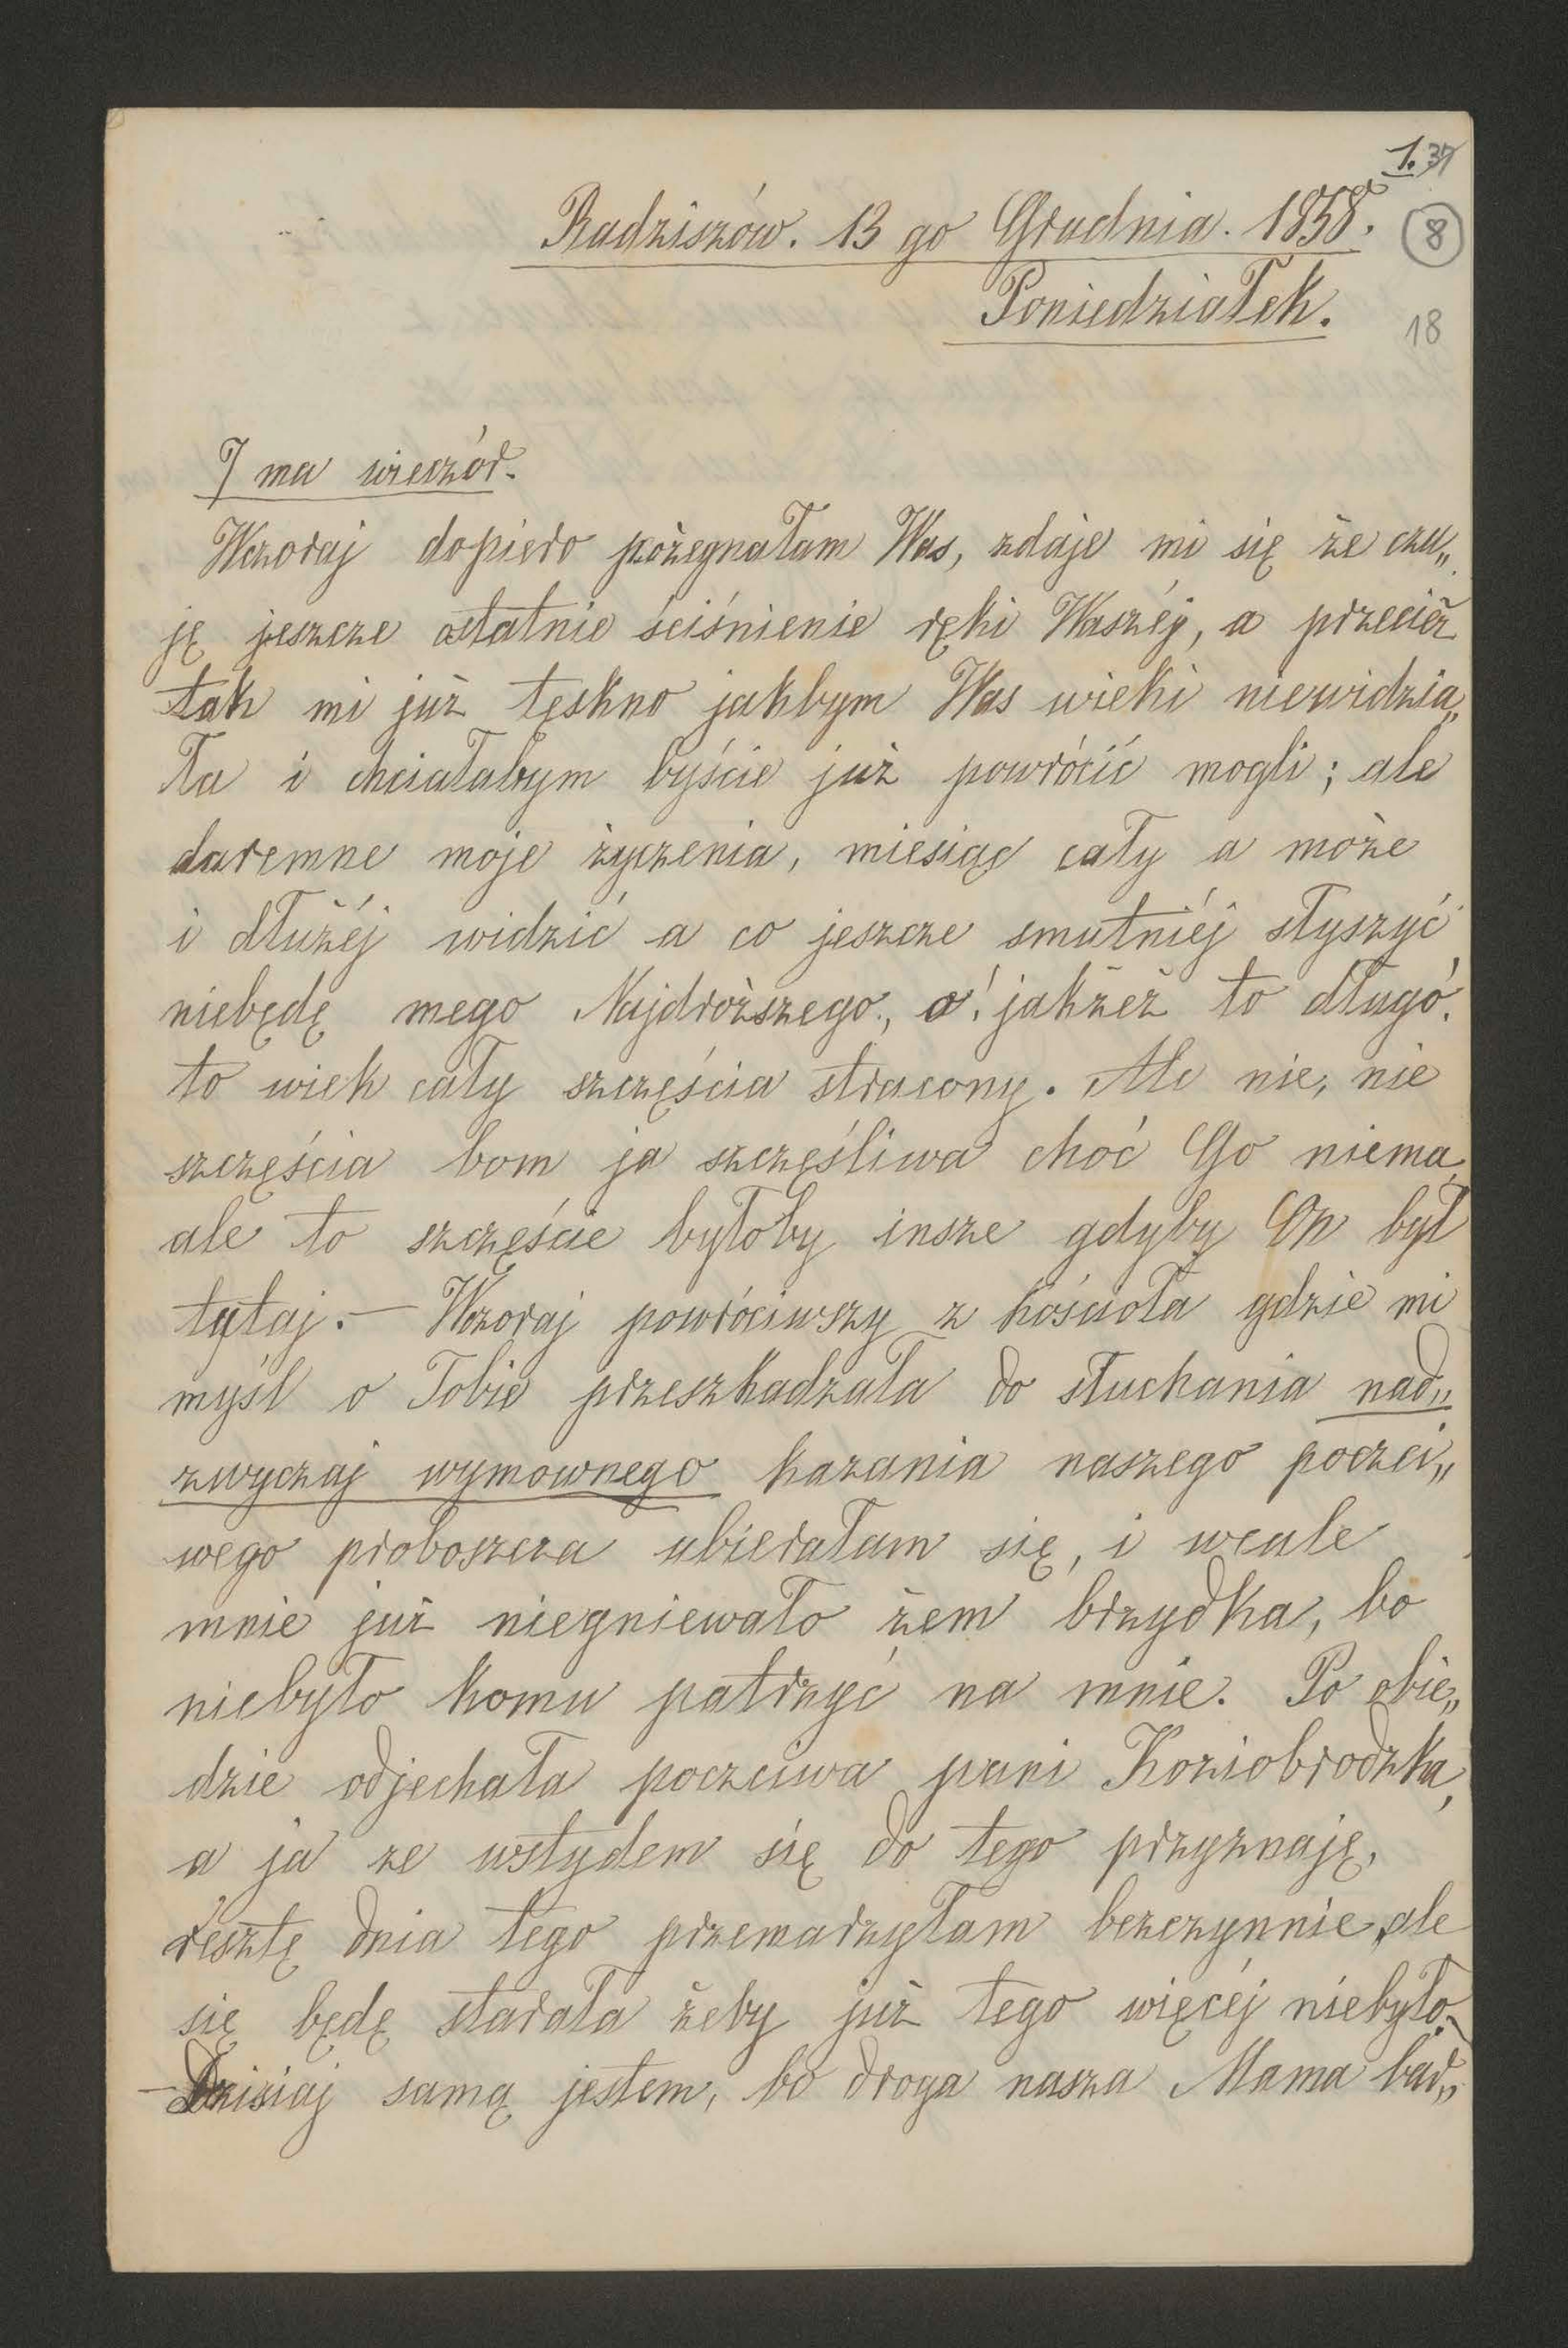 1. 37
Radziszów. 13 go Grudnia. 1858.
8
Poniedziałek.
18
7 ma wieczór.
Wczoraj dopiero pożegnałam Was, zdaje mi się że czu„
ję jeszcze ostatnie ściśnienie ręki Waszéj, a przecież
tak mi już tęskno jakbym Was wieki niewidzia„
ła i chciałabym byście już powrócić mogli; ale
daremne moje życzenia, miesiąc cały a może
i dłużéj widzić a co jeszcze smutniéj słyszyć
niebędę mego Najdroższego, o! jakżeż to długo,
to wiek cały szczęścia stracony. Ale nie, nie
szczęścia bom ja szczęśliwa choć Go niema,
ale to szczęście byłoby insze gdyby On był
tytaj. — Wczoraj powróciwszy z kościoła gdzie mi
myśl o Tobie przeszkadzała do słuchania nad„
zwyczaj wymownego kazania naszego poczci„
wego proboszcza ubierałam się, i wcale
mnie już niegniewało żem brzydka, bo
niebyło komu patrzyć na mnie. Po obie„
dzie odjechała poczciwa pani Koziobrodzka,
a ja ze wstydem się do tego przyznaję,
resztę dnia tego przemarzyłam bezczynnie, ale
się będę starała żeby już tego więcéj niebyło.
— Dzisiaj samą jestem, bo droga nasza Mama bar„